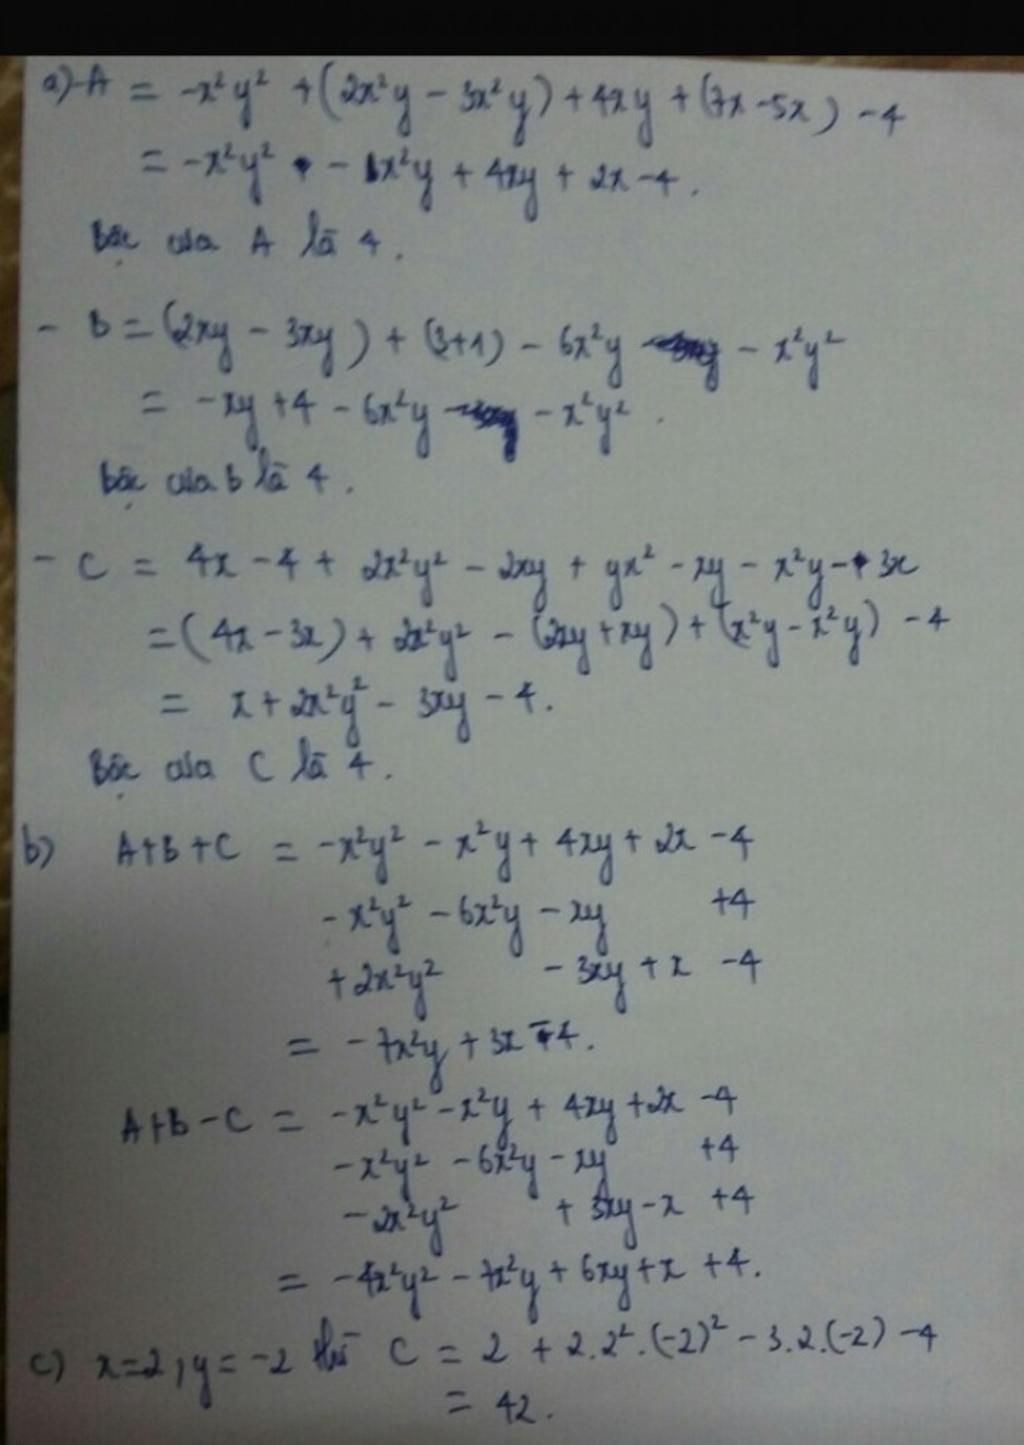 a) - A = -x²y² + (2x²y - 3x²y) + 4xy + (7x - 5x) - 4
= -x²y² - x²y + 4xy + 2x - 4.
Bậc của A là 4.
- B = (2xy - 3xy) + (3+1) - 6x²y - x²y²
= -xy + 4 - 6x²y - x²y².
Bậc của B là 4.
- C = 4x - 4 + 2x²y² - 2xy + yx² - xy - x²y - 3x
= (4x - 3x) + 2x²y² - (2xy + xy) + (x²y - x²y) - 4
= x + 2x²y² - 3xy - 4.
Bậc của C là 4.
b) A+B+C = -x²y² - x²y + 4xy + 2x - 4
- x²y² - 6x²y - xy + 4
+ 2x²y² - 3xy + x - 4
= - 7x²y + 3x - 4.
A+B-C = -x²y² - x²y + 4xy + 2x - 4
- x²y² - 6x²y - xy + 4
- 2x²y² + 3xy - x + 4
= -4x²y² - 7x²y + 6xy + x + 4.
c) x=2, y=-2 thì C = 2 + 2.2².(-2)² - 3.2.(-2) - 4
= 42.